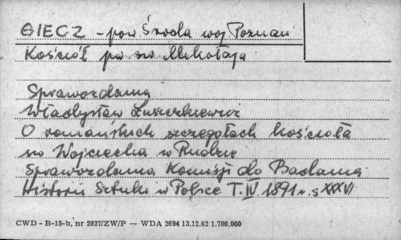 GIECZ - pow Środa woj Poznań
Kościół pw św Mikołaja
Sprawozdania
Władysław Łuszczkiewicz
O romańskich szczegółach kościoła
św Wojciecha w
Sprawozdania Komisji do Badania
Historii Sztuki w Polsce T. IV 1891 r. s XXXVI
CWD - B-15-b, nr 2827/ZW/P — WDA 2694 13.12.62 1.700.000